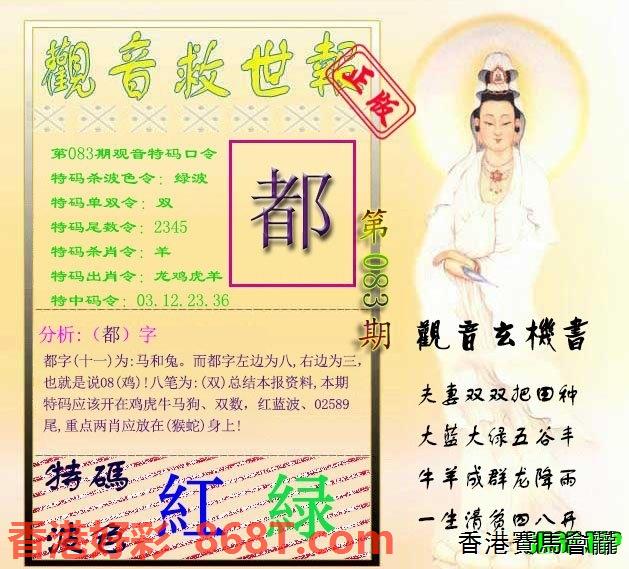 觀音救世報
正版
第083期观音特码口令
特码杀波色令：绿波
特码单双令：双
特码尾数令：2345
特码杀肖令：羊
特码出肖令：龙鸡虎羊
特中码令：03.12.23.36
都
第083期
分析:（都）字
都字(十一)为:马和兔。而都字左边为八,右边为三,
也就是说08(鸡)!八笔为:(双)总结本报资料,本期
特码应该开在鸡虎牛马狗、双数，红蓝波、02589
尾,重点两肖应放在(猴蛇)身上!
特碼
波色
紅 绿
觀音玄機書
夫妻双双把田种
大蓝大绿五谷丰
牛羊成群龙降雨
一生清贫四八开
香港好彩-868T.com
香港賽馬會